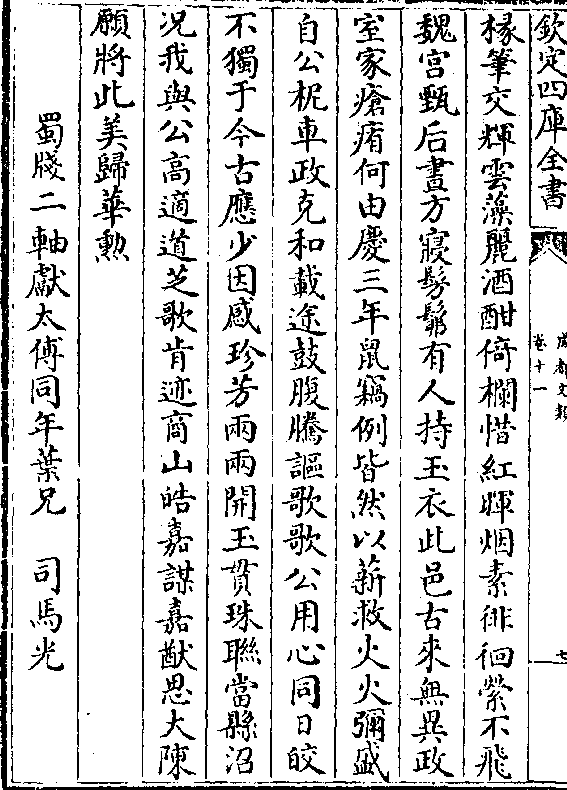 欽定四庫全書
成都文類
卷十一
七
椽筆交輝雲藻麗酒酣倚欄惜紅暉烟素徘徊縈不飛
魏宮甄后晝方寢髣髴有人持玉衣此邑古來無異政
室家瘡痏何由慶三年鼠竊例皆然以薪救火火彌盛
自公柅車政克和載途鼓腹騰謳歌歌公用心同日皎
不獨于今古應少因感珍芳兩兩開玉貫珠聯當縣沼
况我與公高適道芝歌肯迹商山皓嘉謀嘉猷思大陳
願將此美歸華勲
蜀牋二軸獻太傅同年葉兄 司馬光